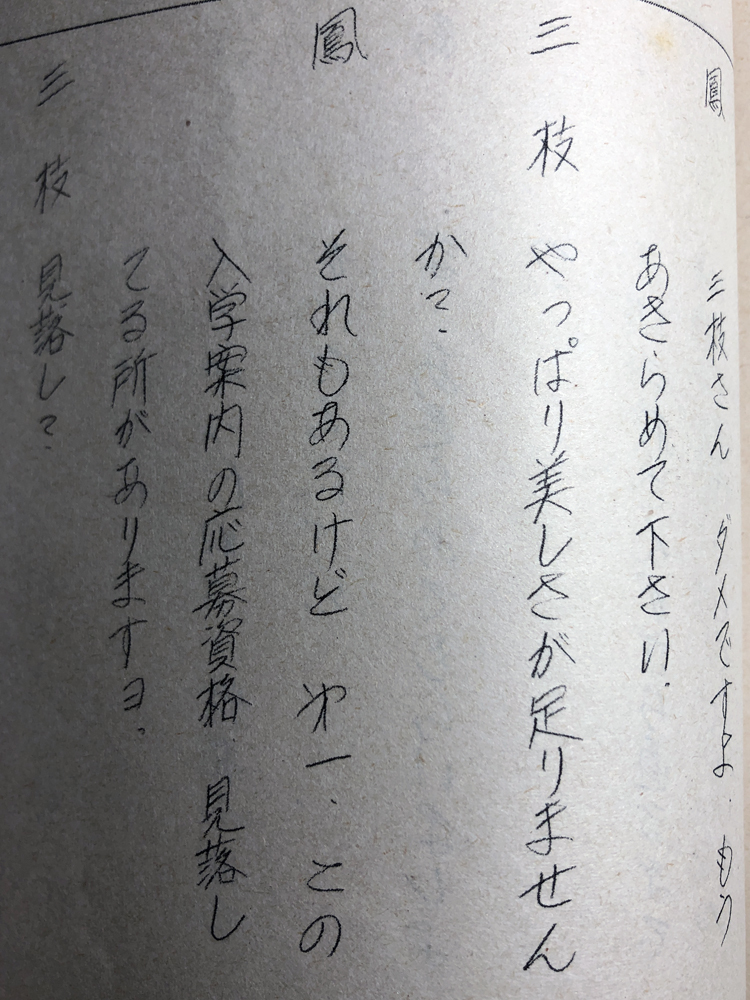 鳳 三枝さん ダメですよ. もう
あきらめて下さい.
三枝 やっぱり美しさが足りません
か?
鳳 それもあるけど 㐧一、この
入学案内の応募資格 見落し
てる所がありますヨ。
三枝 見落し?